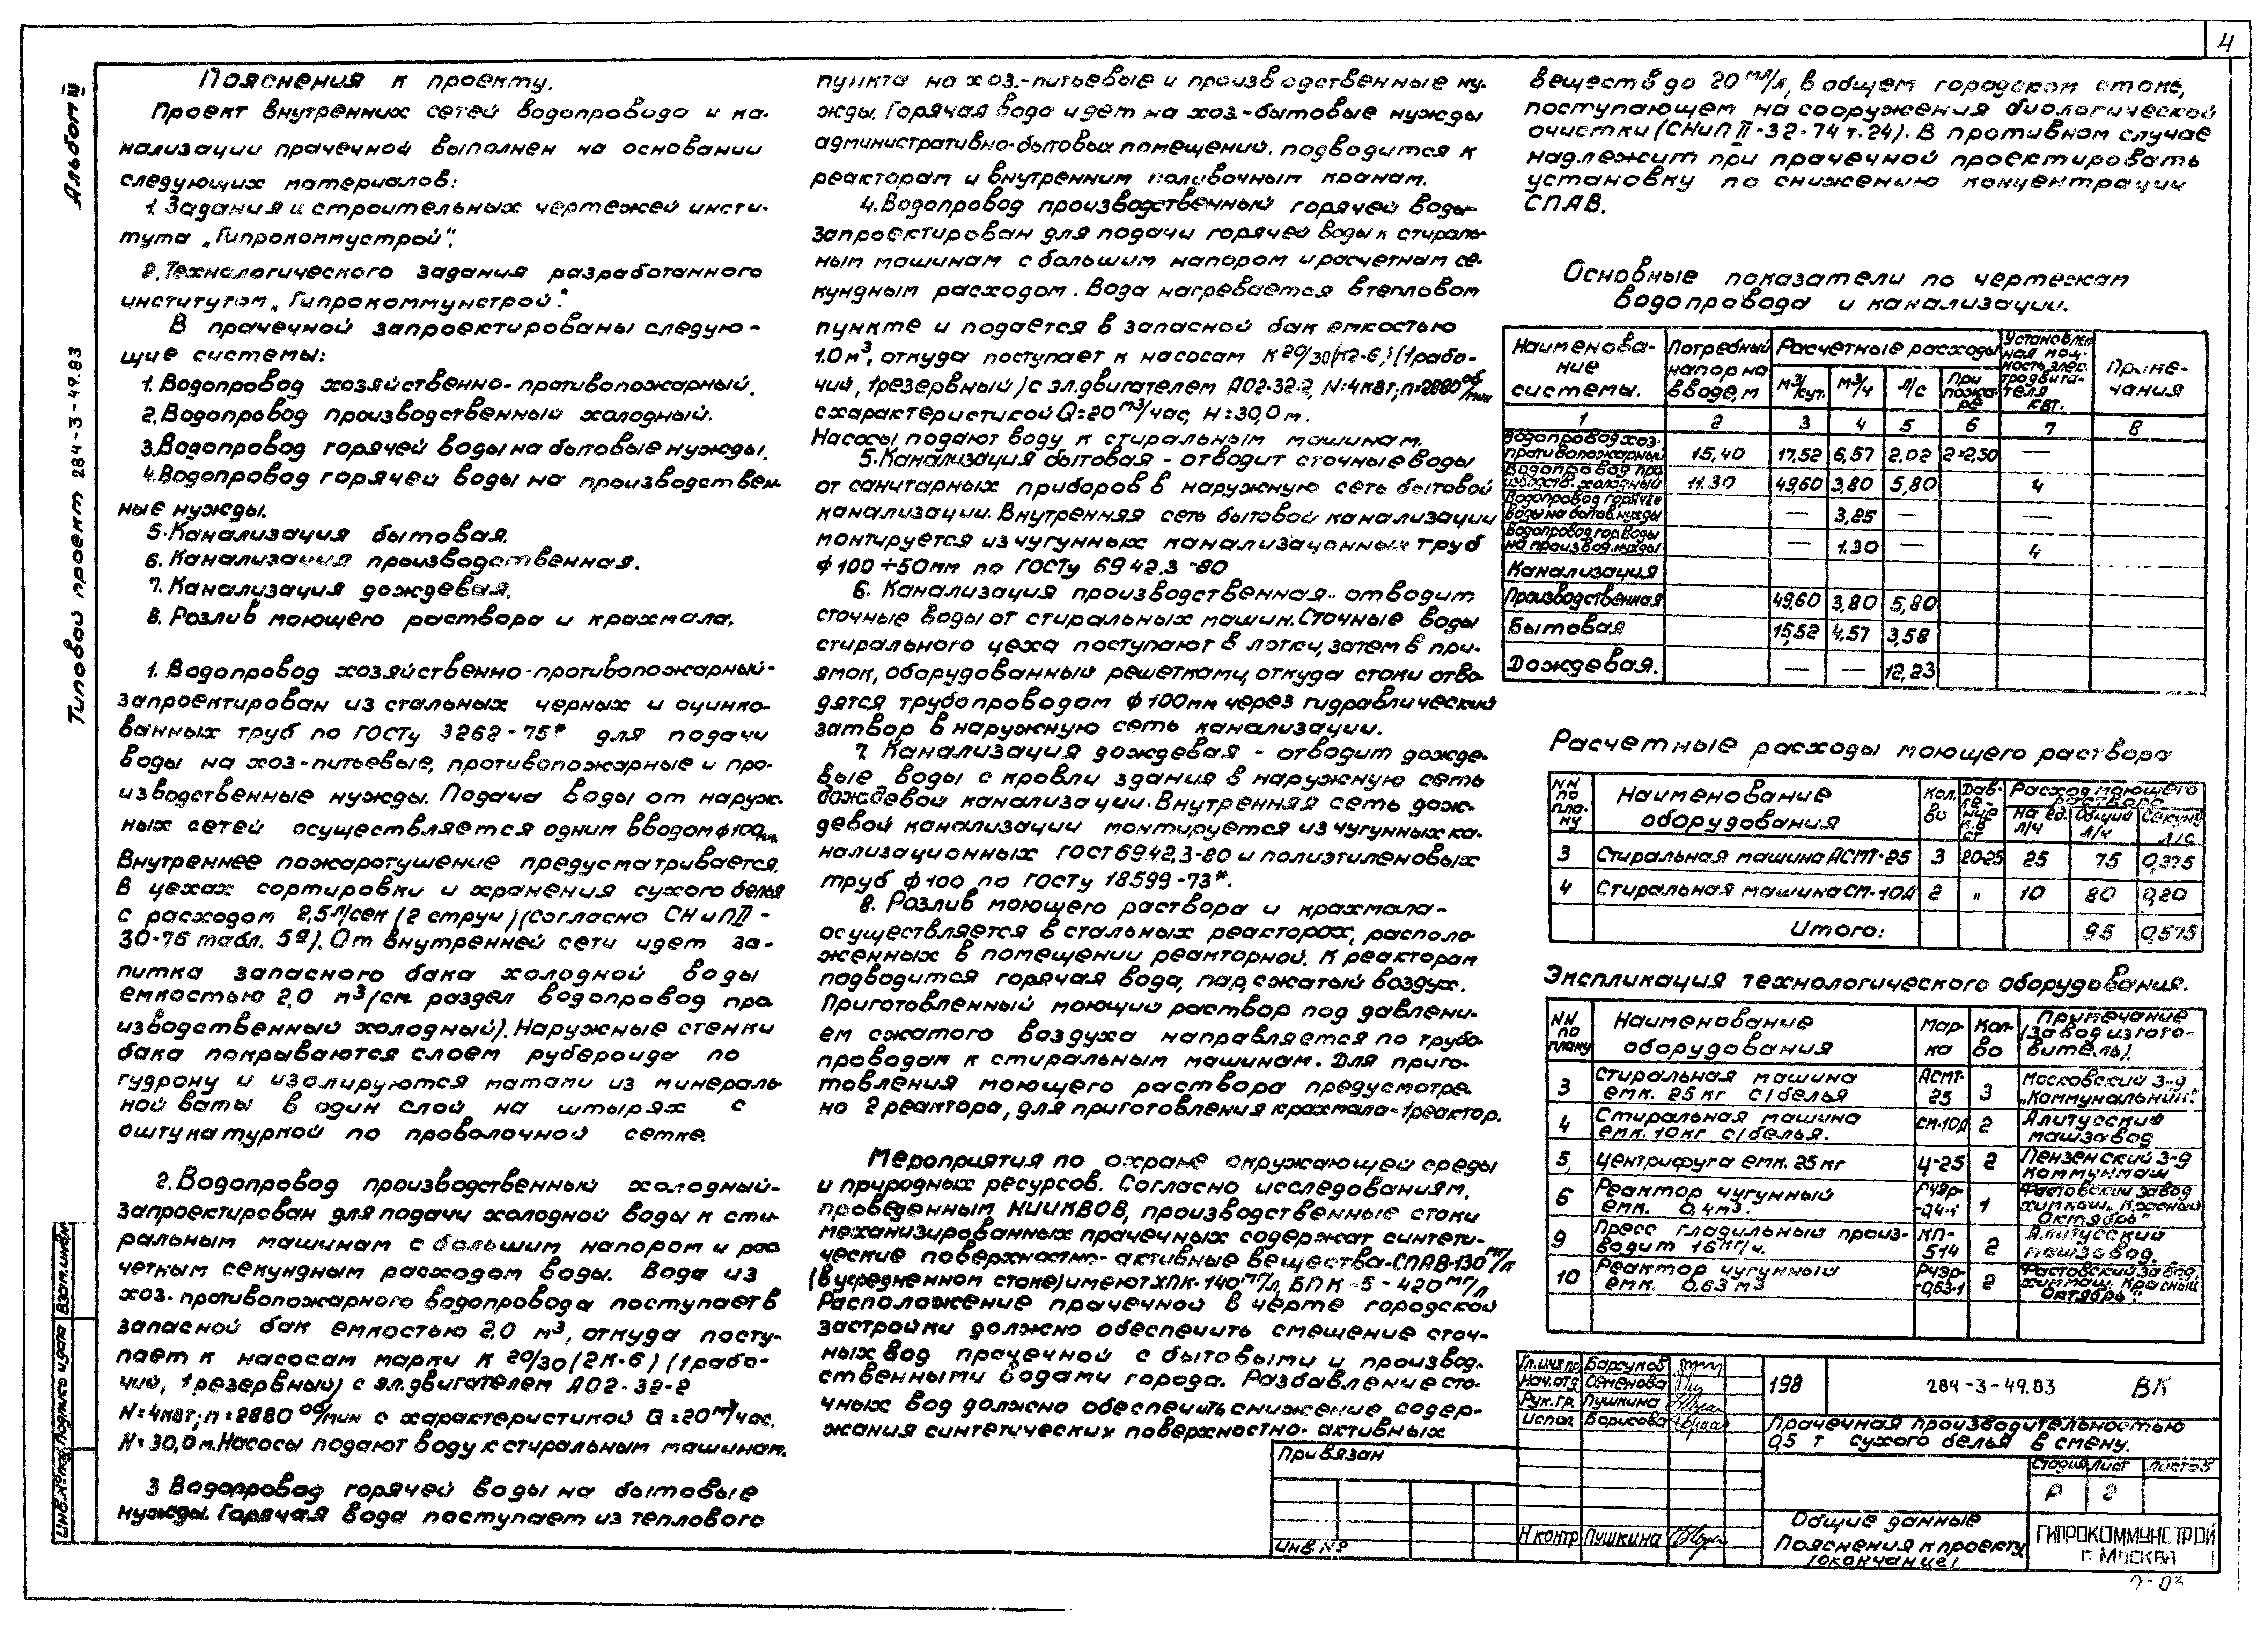 4
Альбом IV
Типовой проект 284-3-49.83
Пояснения к проекту.
Проект внутренних сетей водопровода и ка-
нализации прачечной выполнен на основании
следующих материалов:
1. Задания и строительных чертежей инсти-
тута „Гипрокоммустрой".
2. Технологического задания разработанного
институтом „Гипрокоммунстрой".
В прачечной запроектированы следую-
щие системы:
1. Водопровод хозяйственно-противопожарный.
2. Водопровод производственный холодный.
3. Водопровод горячей воды на бытовые нужды.
4. Водопровод горячей воды на производствен-
ные нужды.
5. Канализация бытовая.
6. Канализация производственная.
7. Канализация дождевая.
8. Розлив моющего раствора и крахмала.
1. Водопровод хозяйственно-противопожарный-
запроектирован из стальных черных и оцинко-
ванных труб по ГОСТу 3262-75* для подачи
воды на хоз-питьевые, противопожарные и про-
изводственные нужды. Подача воды от наруж-
ных сетей осуществляется одним вводом ф100мм.
Внутреннее пожаротушение предусматривается.
В цехах сортировки и хранения сухого белья
с расходом 2,5л/сек (2 струи) (согласно СНиП II-
30-76 табл. 5а). От внутренней сети идет за-
питка запасного бака холодной воды
емкостью 2,0 м³/см. раздел водопровод про-
изводственный холодный). Наружные стенки
бака покрываются слоем рубероида по
гудрону и изолируются матами из минераль-
ной ваты в один слой на штырях с
оштукатуркой по проволочной сетке.
2. Водопровод производственный холодный-
запроектирован для подачи холодной воды к сти-
ральным машинам с большим напором и рас-
четным секундным расходом воды. Вода из
хоз-противопожарного водопровода поступает в
запасной бак емкостью 2,0 м³, откуда посту-
пает к насосам марки К 20/30 (2К-6) (1 рабо-
чий, 1 резервный) с эл.двигателем А02-32-2
N=4квт; n=2880 об/мин с характеристикой Q=20м³/час.
H=30,0м. Насосы подают воду к стиральным машинам.
3 Водопровод горячей воды на бытовые
нужды. Горячая вода поступает из теплового
пункта на хоз.-питьевые и производственные ну-
жды. Горячая вода идет на хоз-бытовые нужды
административно-бытовых помещений, подводится к
реакторам и внутренним поливочным кранам.
4. Водопровод производственный горячей воды-
запроектирован для подачи горячей воды к стираль-
ным машинам с большим напором и расчетным се-
кундным расходом. Вода нагревается в тепловом
пункте и подается в запасной бак емкостью
1.0 м³, откуда поступает к насосам К 20/30 (К2-6,) (1 рабо-
чий, 1 резервный) с эл.двигателем А02-32-2, N=4квт; n=2880 об/мин
с характеристикой Q=20 м³/час, H=30,0 м.
Насосы подают воду к стиральным машинам.
5. Канализация бытовая - отводит сточные воды
от санитарных приборов в наружную сеть бытовой
канализации. Внутренняя сеть бытовой канализации
монтируется из чугунных канализационных труб
ф 100÷50мм по ГОСТу 6942.3-80
6. Канализация производственная - отводит
сточные воды от стиральных машин. Сточные воды
стирального цеха поступают в лотки, затем в при-
ямок, оборудованный решетками, откуда стоки отво-
дятся трубопроводом ф 100мм через гидравлический
затвор в наружную сеть канализации.
7. Канализация дождевая - отводит дожде-
вые воды с кровли здания в наружную сеть
дождевой канализации. Внутренняя сеть дож-
девой канализации монтируется из чугунных ка-
нализационных ГОСТ 6942.3-80 и полиэтиленовых
труб ф 100 по ГОСТу 18599-73*.
8. Розлив моющего раствора и крахмала-
осуществляется в стальных реакторах, располо-
женных в помещении реакторной. К реакторам
подводится горячая вода, пар, сжатый воздух.
Приготовленный моющий раствор под давлени-
ем сжатого воздуха направляется по трубо-
проводам к стиральным машинам. Для приго-
товления моющего раствора предусмотре-
но 2 реактора, для приготовления крахмала-1реактор.
Мероприятия по охране окружающей среды
и природных ресурсов. Согласно исследованиям,
проведенным НИИКВОВ, производственные стоки
механизированных прачечных содержат синтети-
ческие поверхностно-активные вещества-СПАВ-130 мг/л
(в усредненном стоке) имеют ХПК-140 мг/л, БПК-5-420 мг/л
Расположение прачечной в черте городской
застройки должно обеспечить смешение сточ-
ных вод прачечной с бытовыми и производ-
ственными водами города. Разбавление сто-
чных вод должно обеспечить снижение содер-
жания синтетических поверхностно-активных
веществ до 20 мг/л, в общем городском стоке,
поступающем на сооружения биологической
очистки (СНиП II-32-74 т.24). В противном случае
надлежит при прачечной проектировать
установку по снижению концентрации
СПАВ.
Основные показатели по чертежам
водопровода и канализации.
Наименова-ние системы. Потребный напор на вводе, м Расчетные расходы м³/сут. м³/ч л/с При пожаре Установлен-ная мощ-ность элек-тродвига-теля квт. Приме-чания
1 2 3 4 5 6 7 8
Водопровод хоз-противопожарный 15,40 17,52 6,57 2,02 2×2,50 —
Водопровод про-изводств. холодный 11.30 49,60 3,80 5,80 4
Водопровод горячей воды на бытов. нужды — 3,25 — —
Водопровод гор. воды на производ. нужды — 1.30 — 4
Канализация
Производственная 49,60 3,80 5,80
Бытовая 15,52 4,57 3,58
Дождевая. — — 12,23
Расчетные расходы моющего раствора
NN по пла-ну Наименование оборудования Кол. во Дав-ле-ние Расход моющего раствора На ед. л/ч Общий л/ч Секунд л/с
3 Стиральная машина АСМТ-25 3 20-25 25 75 0,375
4 Стиральная машина СМ-10А 2 „ 10 80 0,20
Итого: 95 0,575
Экспликация технологического оборудования.
NN по плану Наименование оборудования Мар-ка Кол-во Примечание (завод изгото-витель).
3 Стиральная машина емк. 25 кг с/белья АСМТ-25 3 Московский з-д „Коммунальник."
4 Стиральная машина емк. 10кг с/белья. СМ-10А 2 Алитусский машзавод
5, Центрифуга емк. 25 кг Ц-25 2 Пензенский з-д коммунмаш
6 Реактор чугунный емк. 0,4м3. РЧЭР-0,4-1 1 Фастовский завод химмаш „Красный Октябрь"
9 Пресс гладильный произ-водит 16 кг/ч. КП-514 2 Алитусский машзавод.
10 Реактор чугунный емк. 0,63 м3 РЧЭР-0,63-1 2 Фастовский завод, химмаш, Красный Октябрь".
Гл.инж.пр. Барсуков
Нач.отд Семенова
Рук.гр. Пушкина
Испол. Борисова
Н.контр Пушкина
198 284-3-49.83 ВК
Прачечная производительностью
0,5 т сухого белья в смену.
Стадия Лист Листов
Р 2
Общие данные
Пояснения к проекту
(окончание)
ГИПРОКОММУНСТРОЙ
г. МОСКВА
Привязан
Инв №
Инв.№ подл. Подпись и дата Взам.инв.№